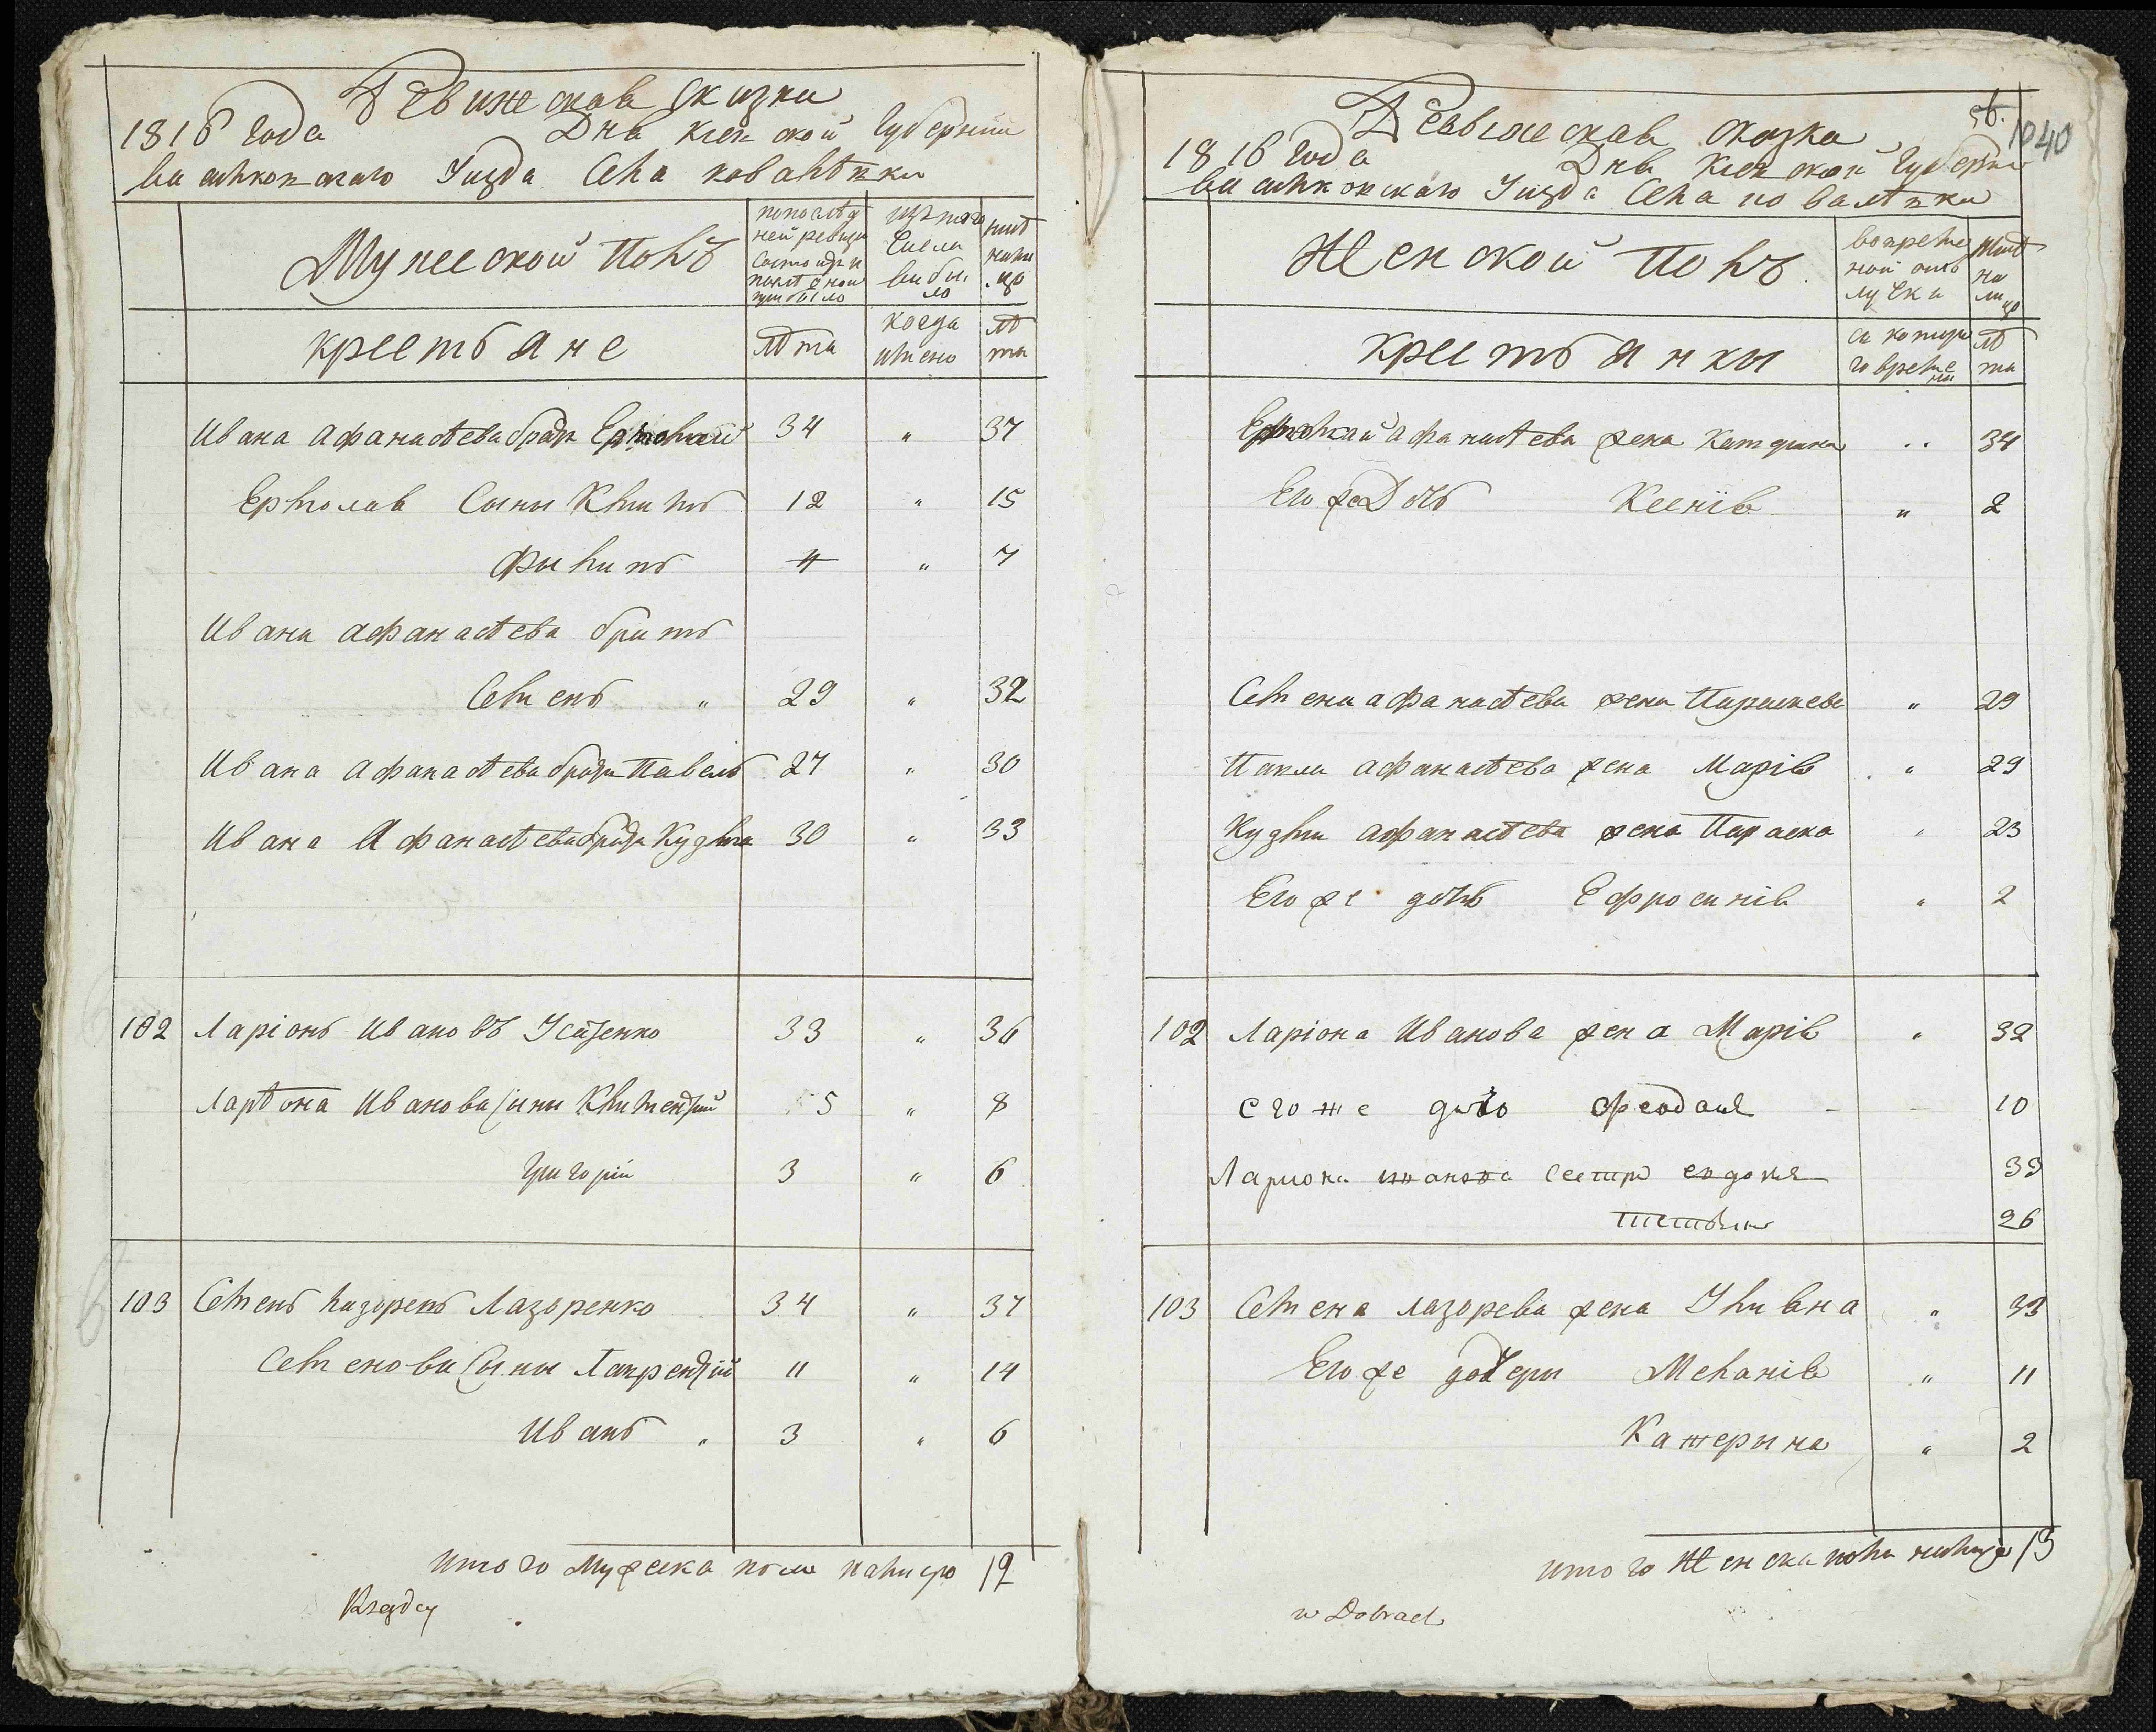 Ревижская сказки
1816 года Дня Киевской Губернии
Васильковскаго Уизда Села ковалѣвки
Мужескои Полъ
попослѣд
ней ревизи
Состояло и
послѣ оной
прибыло
изъ того
Числа
выбы
ло
нынѣ
нали
цо
крестьяне
лѣта
когда
имено
лѣ
та
Ивана афанасѣева братъ Ермолай 34 " 37
Ермолая Сыны Климъ 12 " 15
Филипъ 4 " 7
Ивана афанасѣева братъ
Семенъ " 29 " 32
Ивана афанасѣева братъ Павелъ 27 " 30
Ивана Афанасѣева братъ Кузьма 30 " 33
102 Ларіонъ Ивановъ 33 " 36
Ларѣона Иванова Сыны Климентий 5 " 8
Григорій 3 " 6
103 Семенъ лазоревъ Лазоренко 34 " 37
Семенова Сыны Лаврентій 11 " 14
Иванъ " 3 " 6
итого Мужеска пола налицо 12
Rządcy
56.
1040
Ревижская сказка
1816 года Дня Киевской Губерни
Васильковскаго Уизда Села ковалѣвки
Женской Полъ
вовреме
ной отъ
лучки
нынѣ
на
ли
цо
крестьянки
съ которо
го време
ни
лѣ
та
Ермолая афанасѣева жена Катерина .. 34
Его же Дочь Ксенія " 2
Семена афанасѣева жена Параскева " 29
Павла афанасѣева жена Марія " 29
Кузьмы афанасѣева жена Параска " 23
Его же дочь Ефросинія " 2
102 Ларіона Иванова жена Марія " 32
его же дочь феодосия - - 10
Лариона иванова сестра евдокия 33
26
103 Семена лазорева жена Улияна " 33
Его же дочери Меланія " 11
Катерына " 2
итого Женска пола налицо 13
w Dobrach